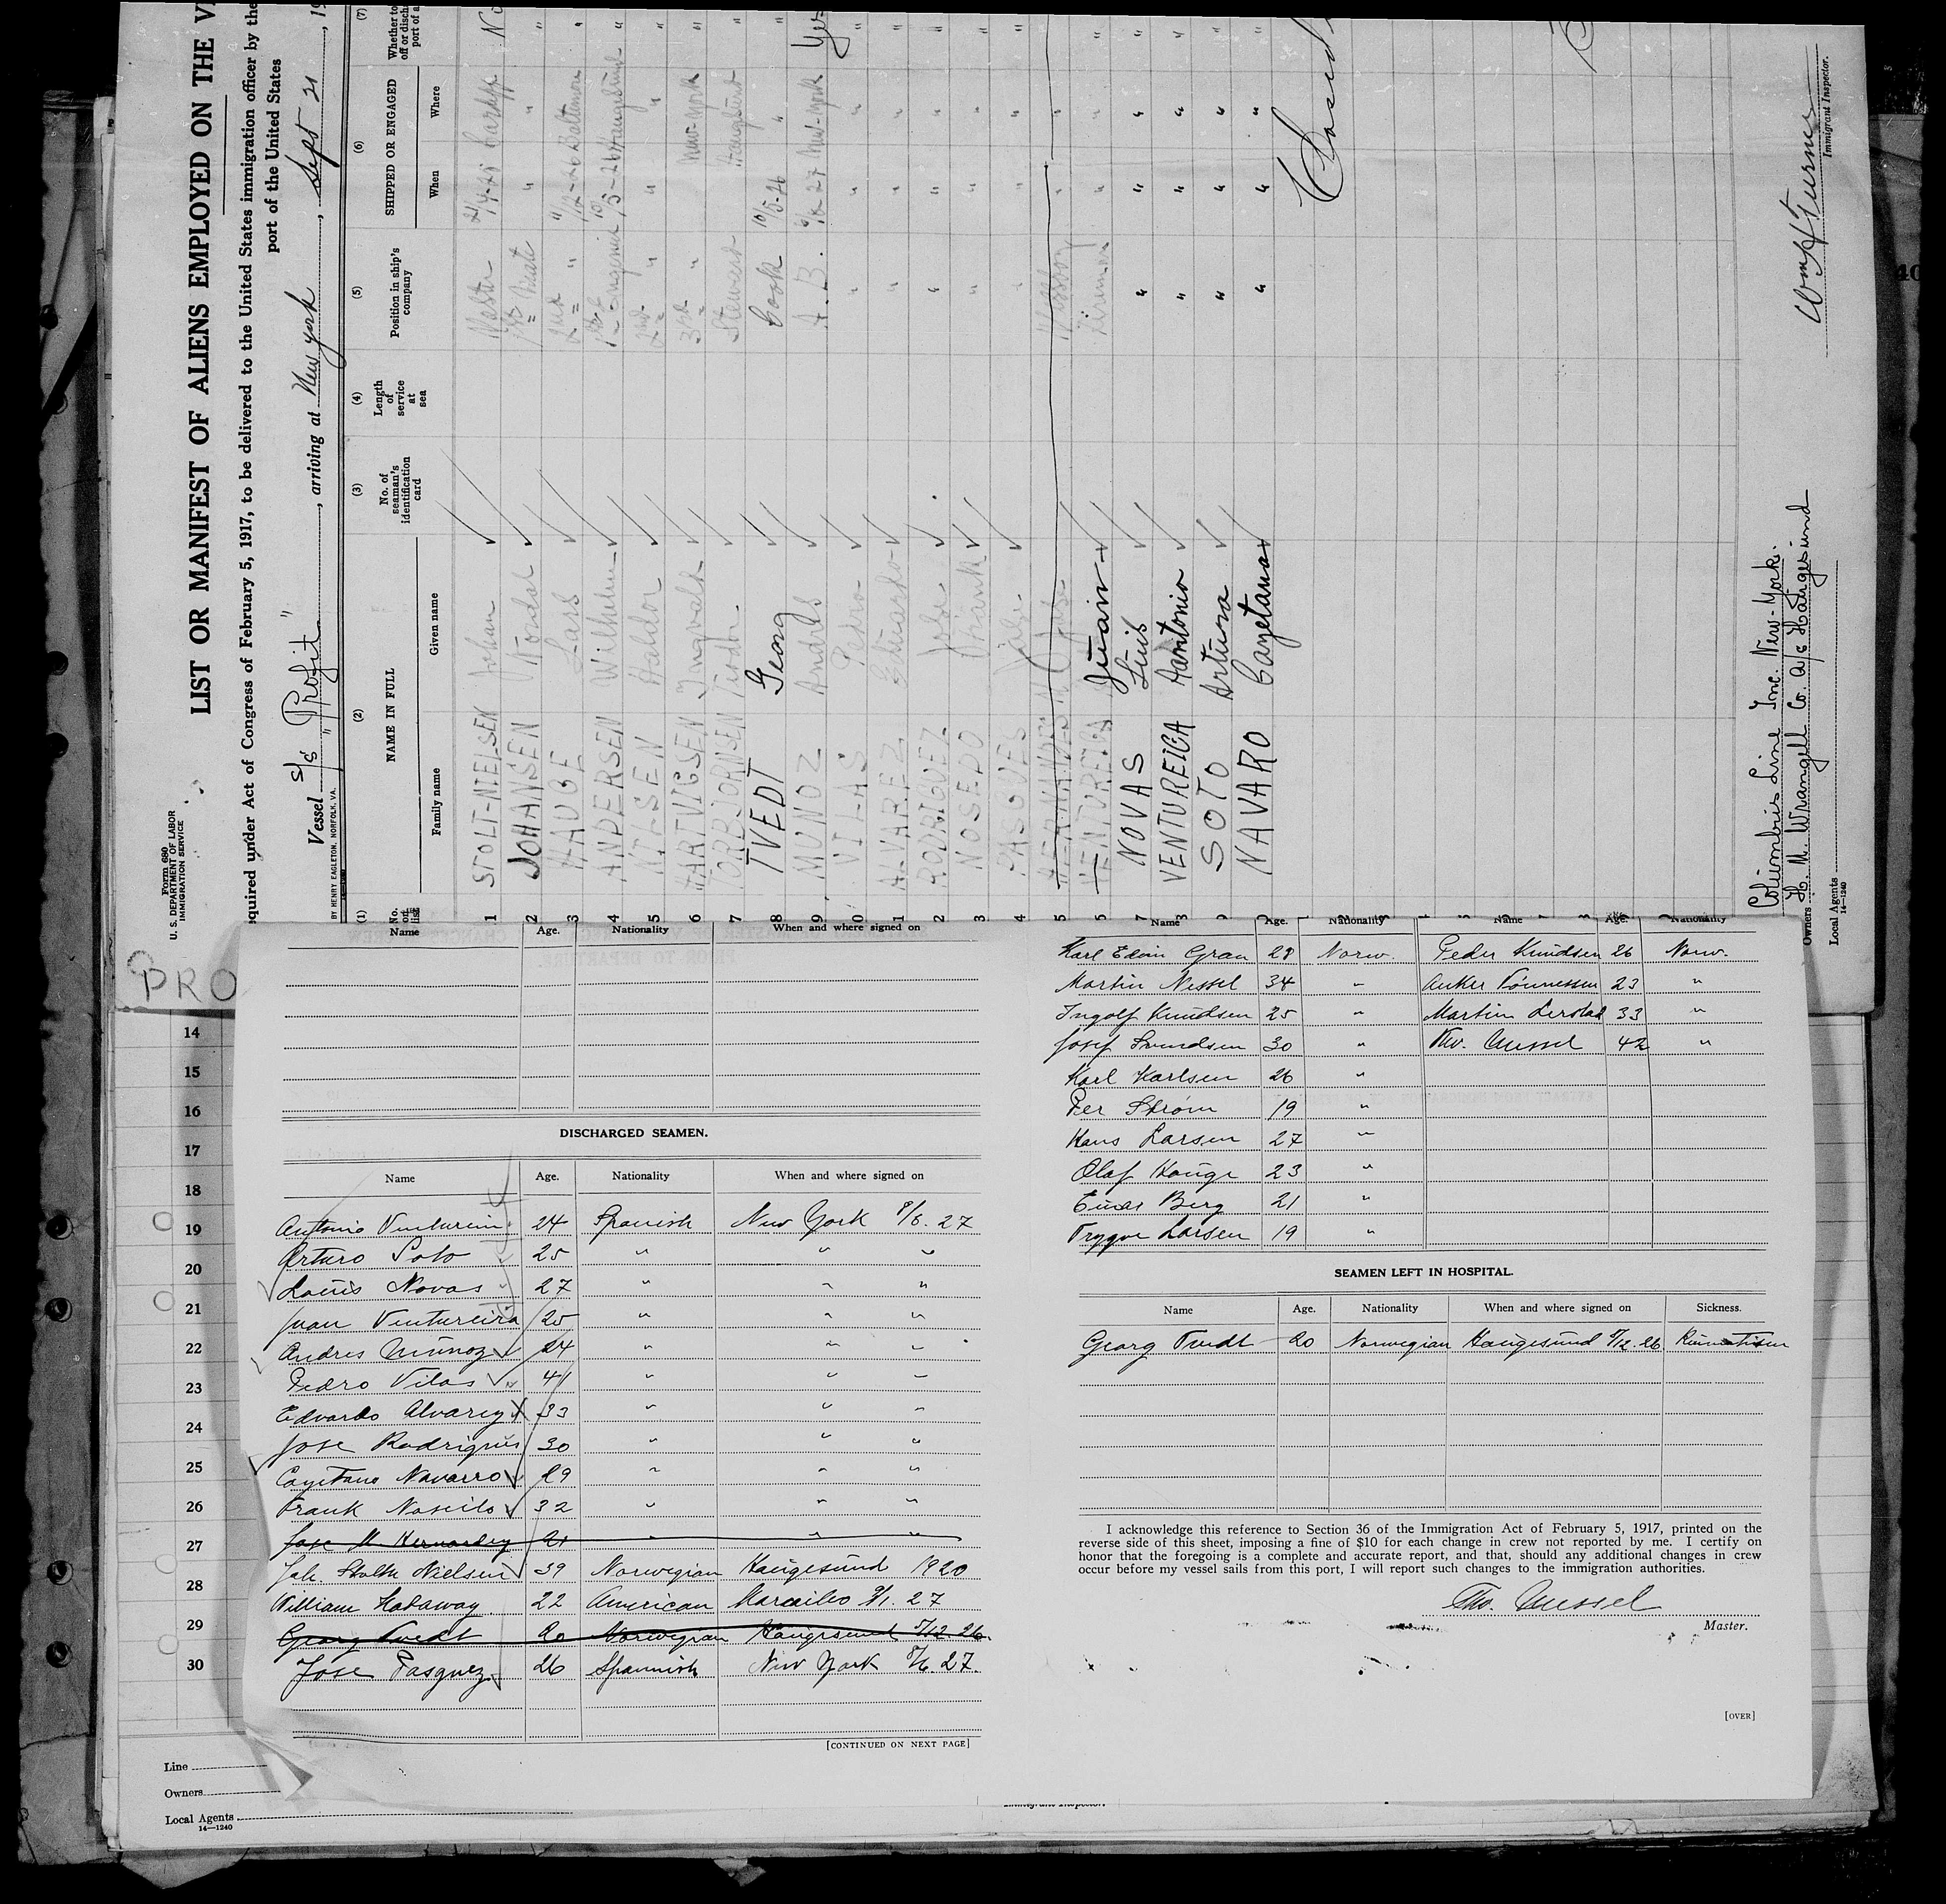 Form 680
U. S. DEPARTMENT OF LABOR
IMMIGRATION SERVICE
LIST OR MANIFEST OF ALIENS EMPLOYED ON THE
equired under Act of Congress of February 5, 1917, to be delivered to the United States immigration officer by the
port of the United States
Vessel S/S "Profit", arriving at New York, Sept 21, 19
BY HENRY EAGLETON, NORFOLK, VA.
(1) (2) (3) (4) (5) (6) (7)
No. on list NAME IN FULL No. of seaman's identification card Length of service at sea Position in ship's company SHIPPED OR ENGAGED Whether to
off or disch
port of a
Family name Given name When Where
1 STOLT-NIELSEN Johan
2 JOHANSEN " "
3 HAUGE Lars 2nd " Baltimore
4 ANDERSEN Wilhelm
5 Haldor 2nd " " "
6 HARTVIGSEN Ingvald 3rd " New-York
7 TORBJORNSEN Steward
8 TVEDT Georg Cook 10/5-26 "
9 MUNOZ Andres A.B. 27 New-York Yes
0 VILAS Pedro " " " "
1 ALVAREZ " " " "
2 RODRIGUEZ Jose " " " "
3 NOSEDO Frank " " " "
4
5 HERNANDEZ
6 VENTUREIGA Juan Fireman " " "
7 NOVAS Luis " " " "
8 VENTUREIGA Aantonio " " " "
9 SOTO Arturo " " " "
NAVARO Cayetano " " " "
Closed
Columbus Line Inc. New-York.
Owners H. M. Wrangell Co. a/s Haugesund
Local Agents
14—1240
Immigrant Inspector.
PRO
14
15
16
17
18
19
20
21
22
23
24
25
26
27
28
29
30
Line
Owners
Local Agents
14—1240
Name Age. Nationality When and where signed on
DISCHARGED SEAMEN.
Name Age. Nationality When and where signed on
Antonio 24 Spanish New York 8/6. 27
Arturo Soto 25 " " "
Louis Novas 27 " " "
Juan Ventureira 25 " " "
Andres Munoz 24 " " "
Pedro Vilas 41 " " "
Edvardo Alvarez 33 " " "
Jose Rodrigues 30 " " "
Cayetano Navarro 29 " " "
Frank 32 " " "
Jose M. Hernandez 21 " " "
Joh. Stolth Nielsen 39 Norwegian Haugesund 1920
William Hadaway 22 American 27
Georg Tvedt 20 Norwegian Haugesund 5/12. 26.
Jose Pasquez 26 Spannish New York 8/6. 27.
[CONTINUED ON NEXT PAGE]
Name Age. Nationality Name Age. Nationality
Karl Edvin Gran 28 Norw. Peder Knudsen 26 Norw.
Martin Nessel 34 " Anker Tønnessen 23 "
Ingolf Knudsen 25 " Martin 33 "
Josef Svendsen 30 " Tho. 42 "
Karl Karlsen 26 "
Per Strøm 19 "
Hans Larsen 27 "
Olaf Hauge 23 "
Einar Berg 21 "
Trygve Larsen 19 "
SEAMEN LEFT IN HOSPITAL.
Name Age. Nationality When and where signed on Sickness.
Georg Tvedt 20 Norwegian Haugesund 5/12. 26
I acknowledge this reference to Section 36 of the Immigration Act of February 5, 1917, printed on the
reverse side of this sheet, imposing a fine of $10 for each change in crew not reported by me. I certify on
honor that the foregoing is a complete and accurate report, and that, should any additional changes in crew
occur before my vessel sails from this port, I will report such changes to the immigration authorities.
Tho.
Master.
[OVER]